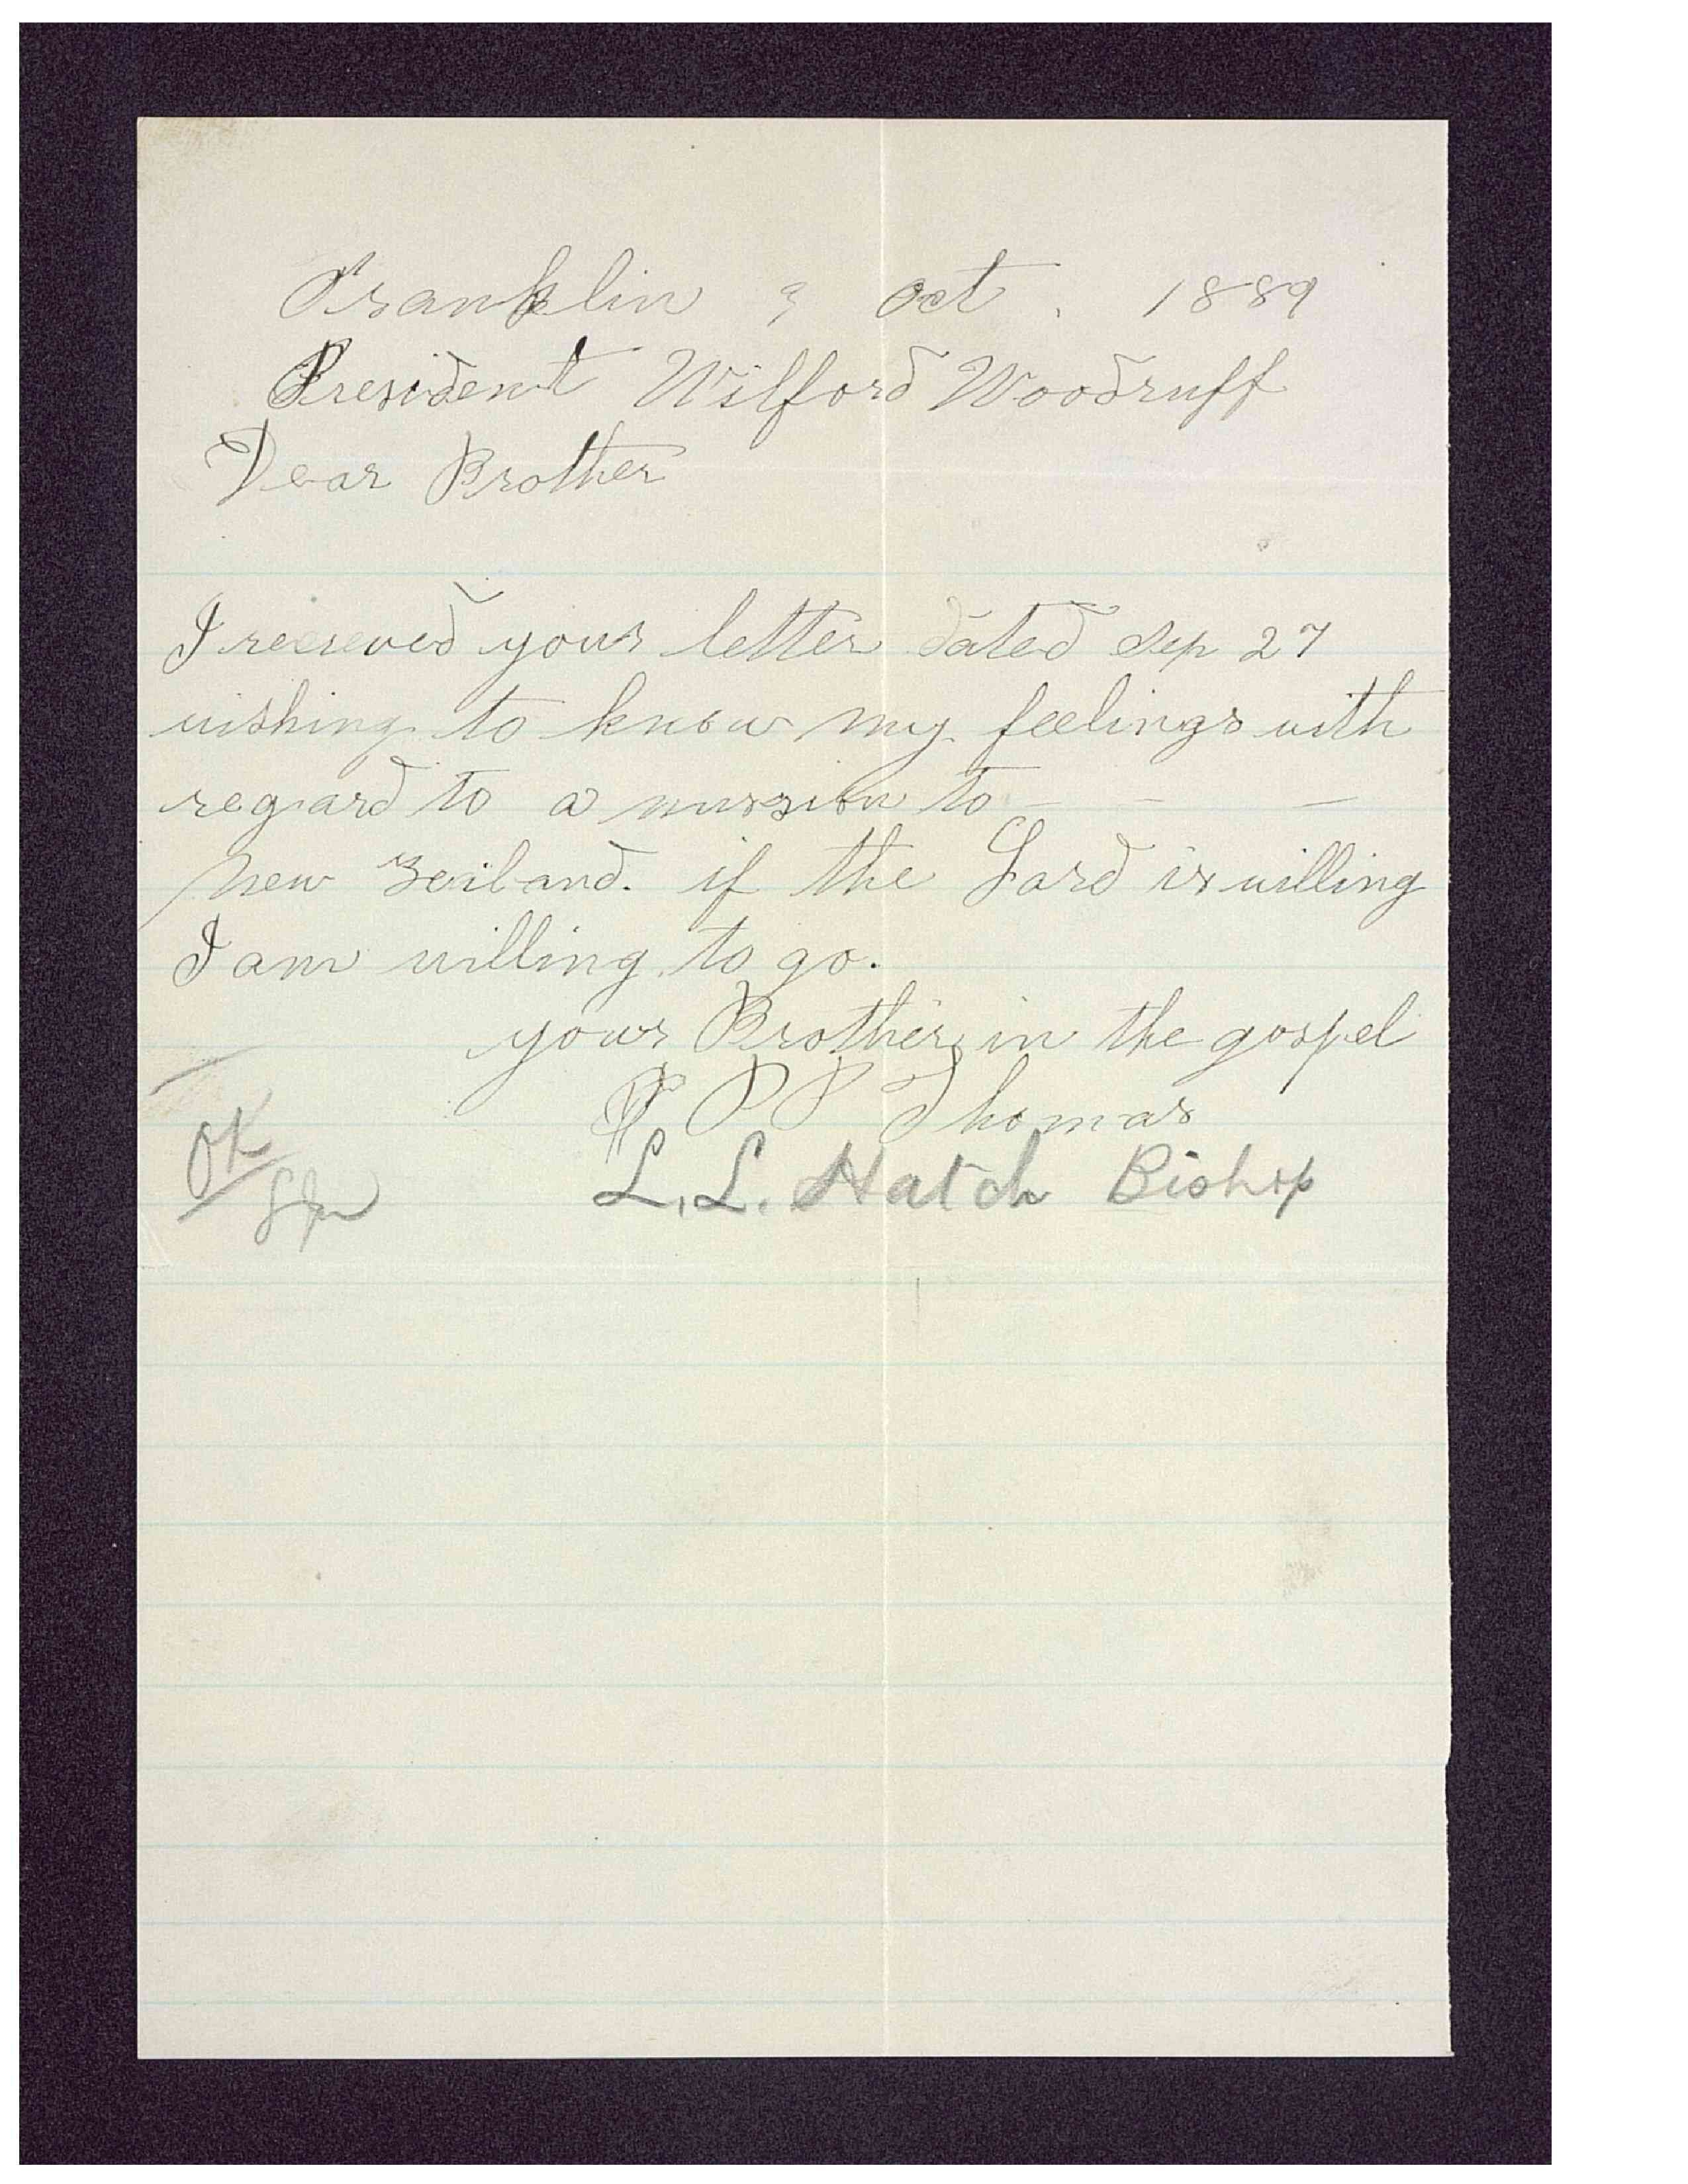 Franklin 9 oct. 1889
President Wilford Woodruff
Dear Brother
I recieved your letter dated Sep 27
wishing to know my feelings with
regard to a mission to - - -
New Zeiland. if the Lord is willing
I am willing to go.
your Brother in the gospel
P P Thomas
L. L. Hatch Bishop
OK